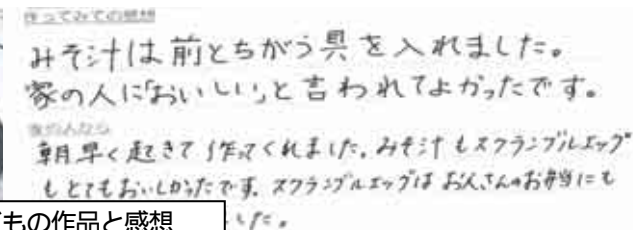 作ってみての感想
みそ汁は前とちがう具を入れました。
家の人に「おいしい」と言われてよかったです。
家の人から
朝早く起きて作ってくれました。みそ汁もスクランブルエッグ
もとてもおいしかったです。スクランブルエッグはお父さんのお弁当にも
もの作品と感想
した。